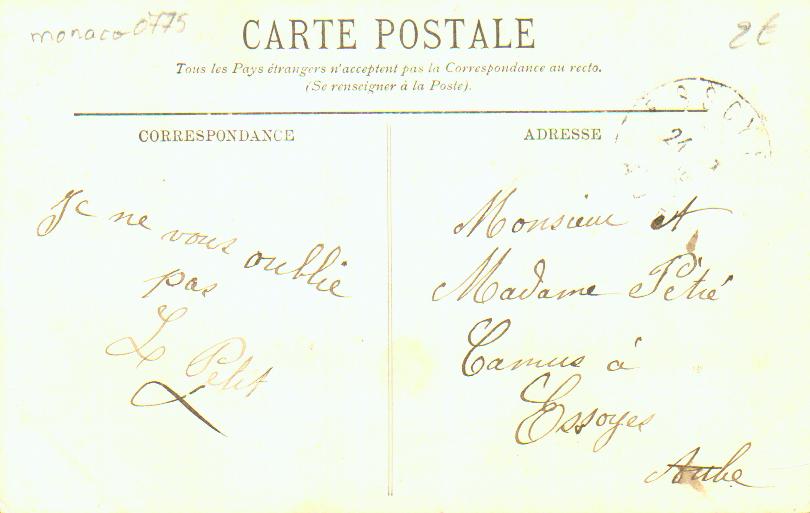 monaco 0775
2€
CARTE POSTALE
Tous les Pays étrangers n'acceptent pas la Correspondance au recto.
(Se renseigner à la Poste).
CORRESPONDANCE
Je ne vous oublie
pas
Le Petit
ADRESSE
Monsieur et
Madame Pétré
Camus à
Essoyes
Aube
21